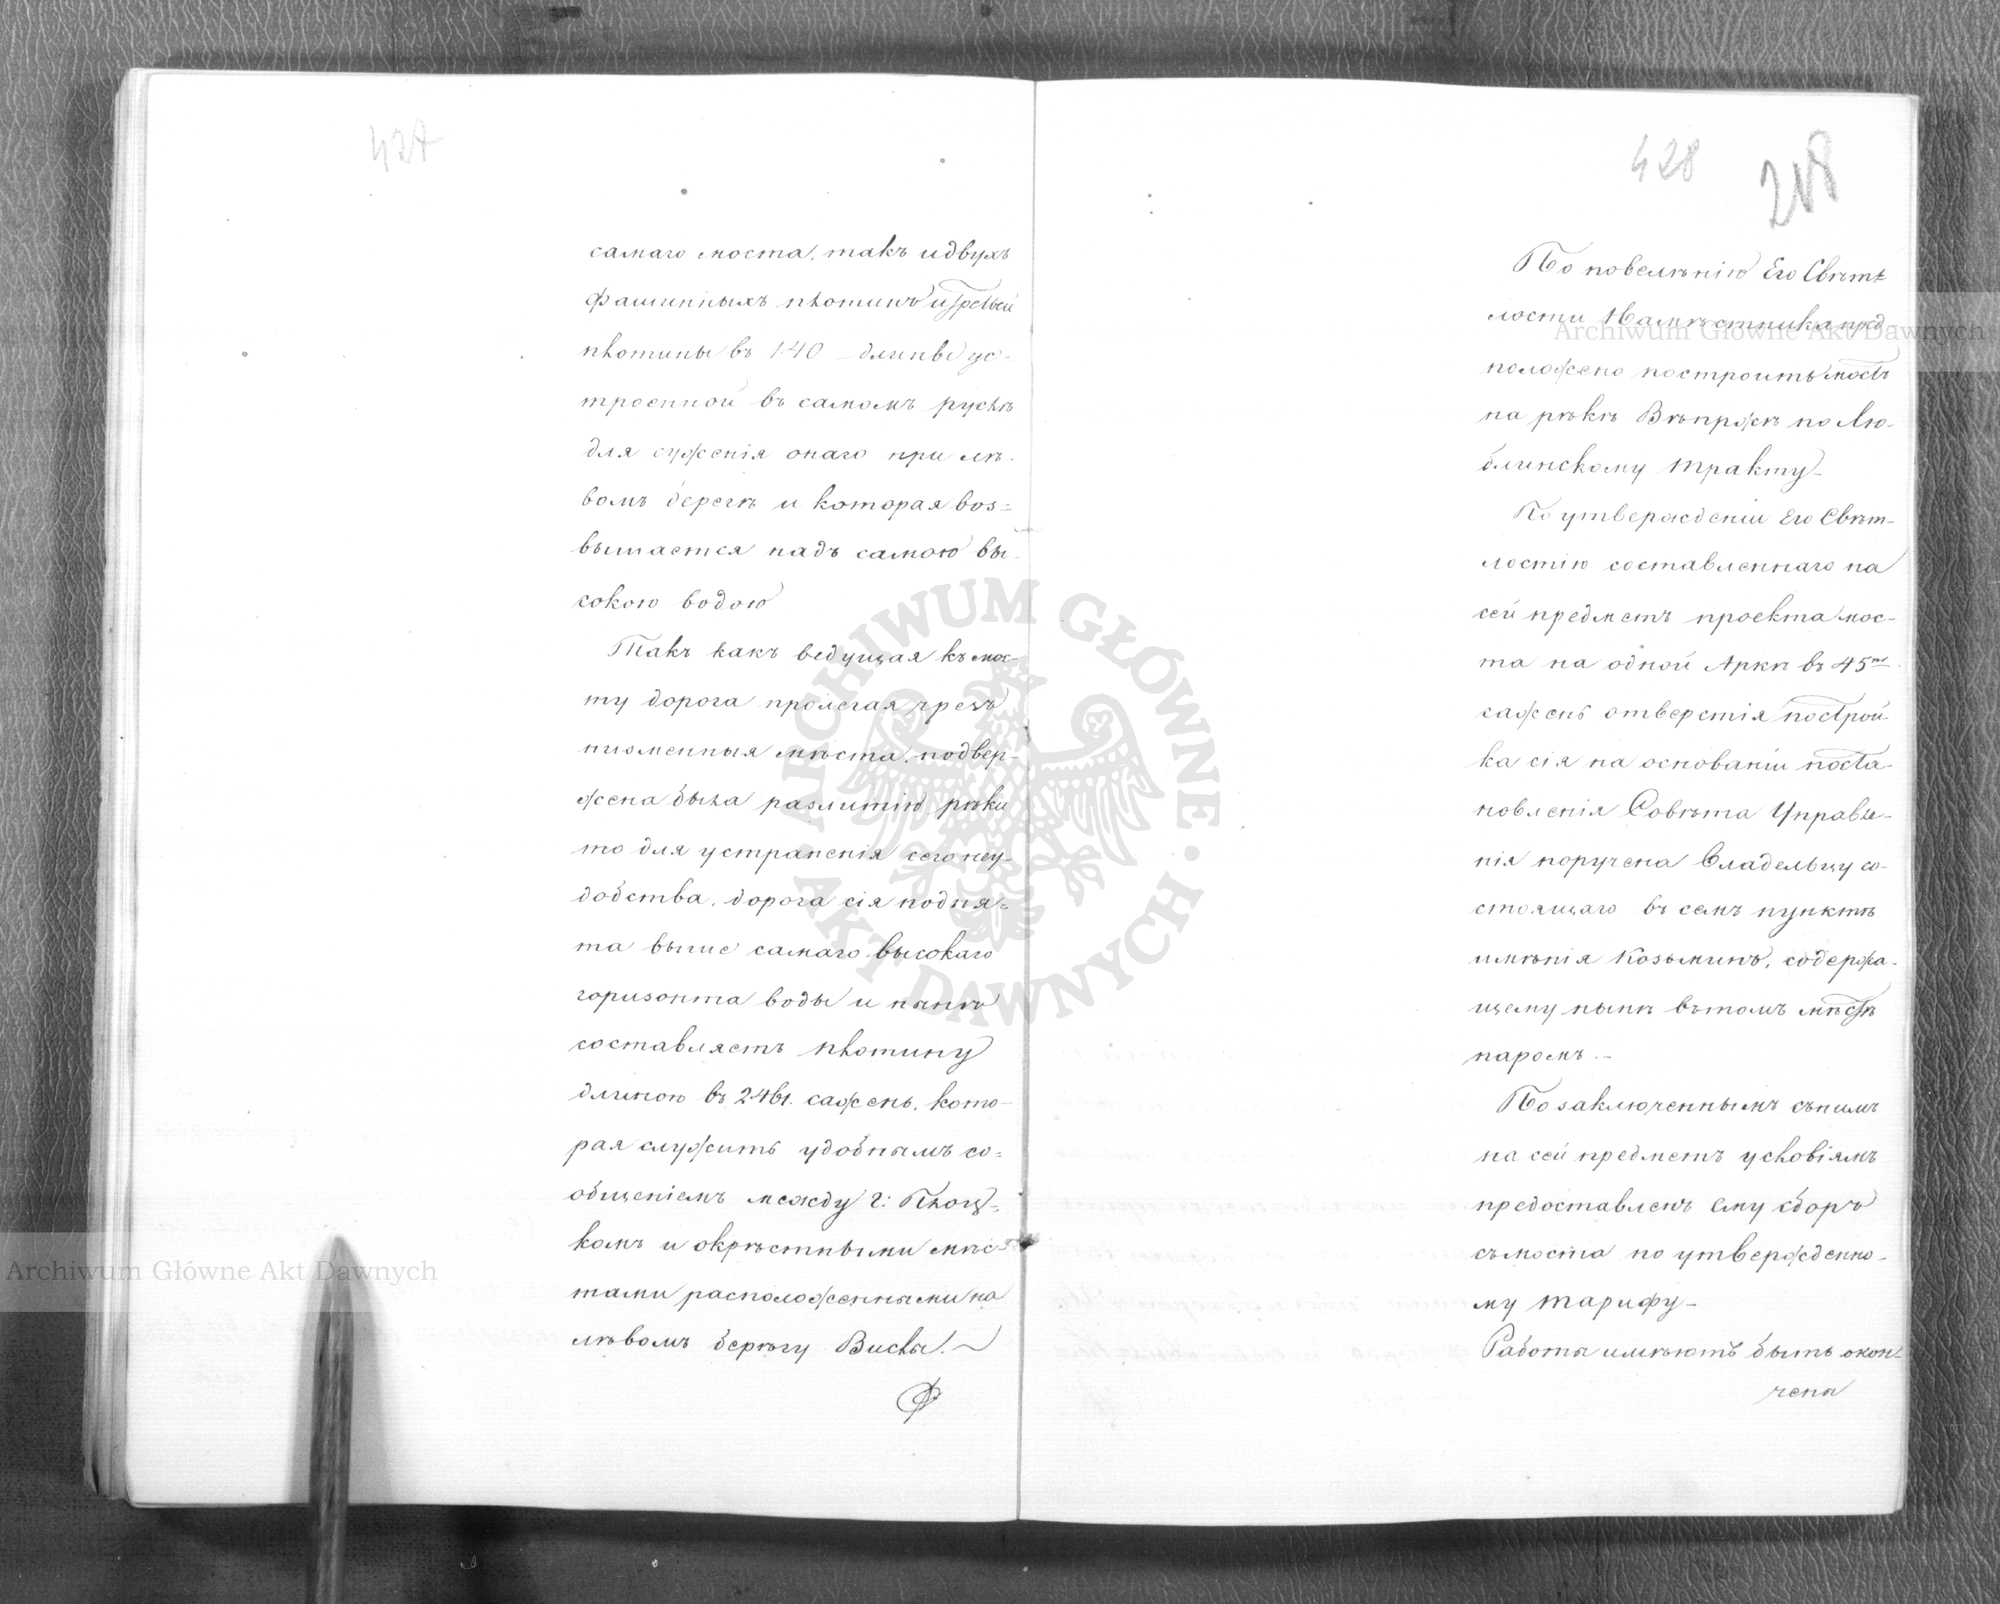 427
самаго моста, такъ и двухъ
фашинныхъ плотинъ и третьей
плотины въ 140 длинѣ ус-
троенной въ самомъ руслѣ
для суженія онаго при лѣ-
вомъ берегѣ и которая воз=
вышается надъ самою вы-
сокою водою
Такъ какъ ведущая къ мос-
ту дорога пролегая чрезъ
низменныя мѣста, подвер-
жена была разлитію рѣки
то для устраненія сего неу-
добства, дорога сія подня=
та выше самаго высокаго
горизонта воды и нынѣ
составляетъ плотину
длиною въ сажень, кото-
рая служитъ удобнымъ со=
общеніемъ между г: Плоц=
комъ и окрѣстными мѣс-
тами расположенными на
лѣвомъ берѣгу Вислы.
428
По повелѣнію Его Свѣт
лости Намѣстника пред
положено построить мостъ
на рѣкѣ Вѣпржѣ по Лю-
блинскому тракту-
По утвержденіи Его Свѣт-
лостію составленнаго на
сей предметъ проекта мос-
та на одной Аркѣ въ 45ти
сажень отверстія построй-
ка сія на основаніи поста-
новленія Совѣта Управле-
нія поручена Владельцу со-
стоящаго въ семъ пунктѣ
имѣнія Козьминъ, содержа-
щему нынѣ въ томъ мѣстѣ
паромъ.-
По заключеннымъ съ нимъ
на сей предметъ условіямъ
предоставленъ ему сборъ
съ моста по утвержденно-
му тарифу-
Работы имѣютъ быть окон-
чена
Archiwum Główne Akt Dawnych
Archiwum Główne Akt Dawnych
ARCHIWUM GŁÓWNE · AKT DAWNYCH ·